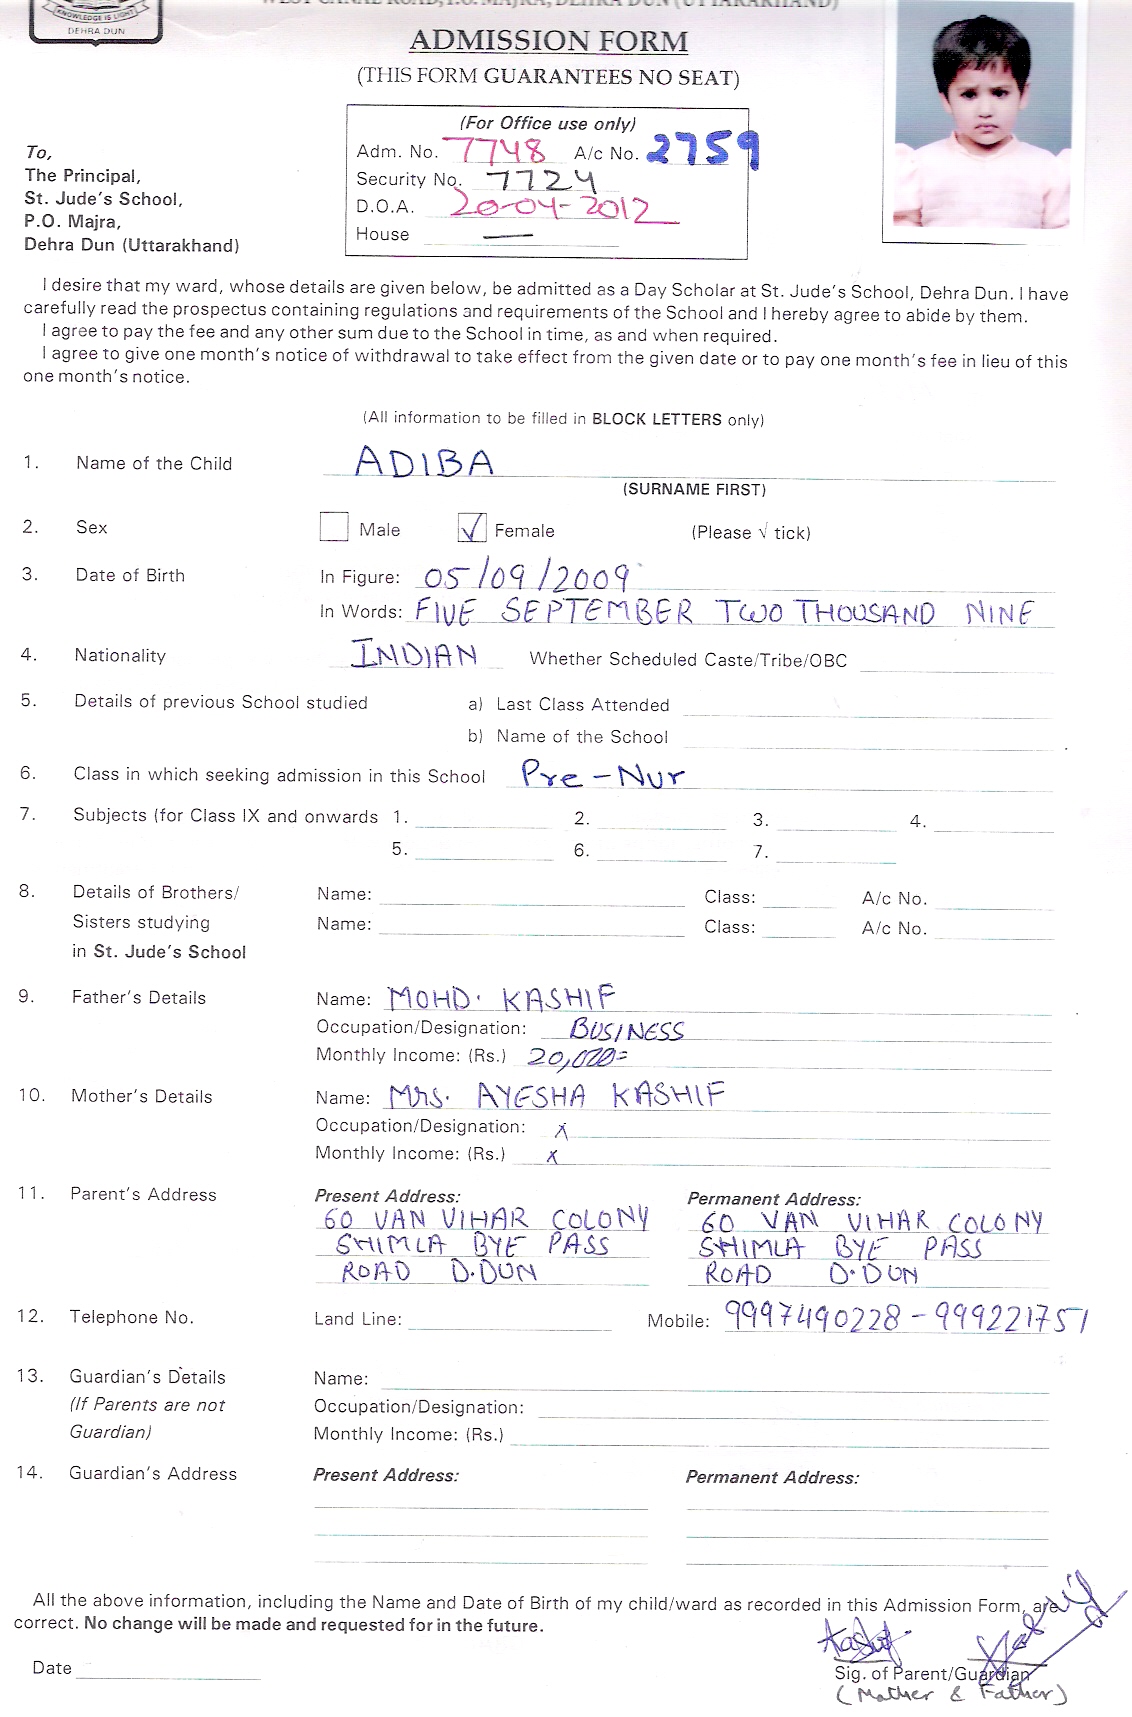 KNOWLEDGE IS LIGHT
DEHRA DUN
WEST CANAL ROAD, P.O. MAJRA, DEHRA DUN (UTTARAKHAND)
ADMISSION FORM
(THIS FORM GUARANTEES NO SEAT)
(For Office use only)
Adm. No. 7748 A/c No. 2759
Security No. 7724
D.O.A. 20-04-2012
House —
To,
The Principal,
St. Jude's School,
P.O. Majra,
Dehra Dun (Uttarakhand)
I desire that my ward, whose details are given below, be admitted as a Day Scholar at St. Jude's School, Dehra Dun. I have
carefully read the prospectus containing regulations and requirements of the School and I hereby agree to abide by them.
I agree to pay the fee and any other sum due to the School in time, as and when required.
I agree to give one month's notice of withdrawal to take effect from the given date or to pay one month's fee in lieu of this
one month's notice.
(All information to be filled in BLOCK LETTERS only)
1. Name of the Child ADIBA
(SURNAME FIRST)
2. Sex Male ✓ Female (Please √ tick)
3. Date of Birth In Figure: 05/09/2009
In Words: FIVE SEPTEMBER TWO THOUSAND NINE
4. Nationality INDIAN Whether Scheduled Caste/Tribe/OBC
5. Details of previous School studied a) Last Class Attended
b) Name of the School
6. Class in which seeking admission in this School Pre-Nur
7. Subjects (for Class IX and onwards 1. 2. 3. 4.
5. 6. 7.
8. Details of Brothers/ Name: Class: A/c No.
Sisters studying Name: Class: A/c No.
in St. Jude's School
9. Father's Details Name: MOHD. KASHIF
Occupation/Designation: BUSINESS
Monthly Income: (Rs.) 20,000=
10. Mother's Details Name: Mrs. AYESHA KASHIF
Occupation/Designation: x
Monthly Income: (Rs.) x
11. Parent's Address Present Address: Permanent Address:
60 VAN VIHAR COLONY 60 VAN VIHAR COLONY
SHIMLA BYE PASS SHIMLA BYE PASS
ROAD D.DUN ROAD D.DUN
12. Telephone No. Land Line: Mobile: 9997490228 - 999221751
13. Guardian's Details Name:
(If Parents are not Occupation/Designation:
Guardian) Monthly Income: (Rs.)
14. Guardian's Address Present Address: Permanent Address:
All the above information, including the Name and Date of Birth of my child/ward as recorded in this Admission Form, are
correct. No change will be made and requested for in the future.
Date
Sig. of Parent/Guardian
(Mother & Father)